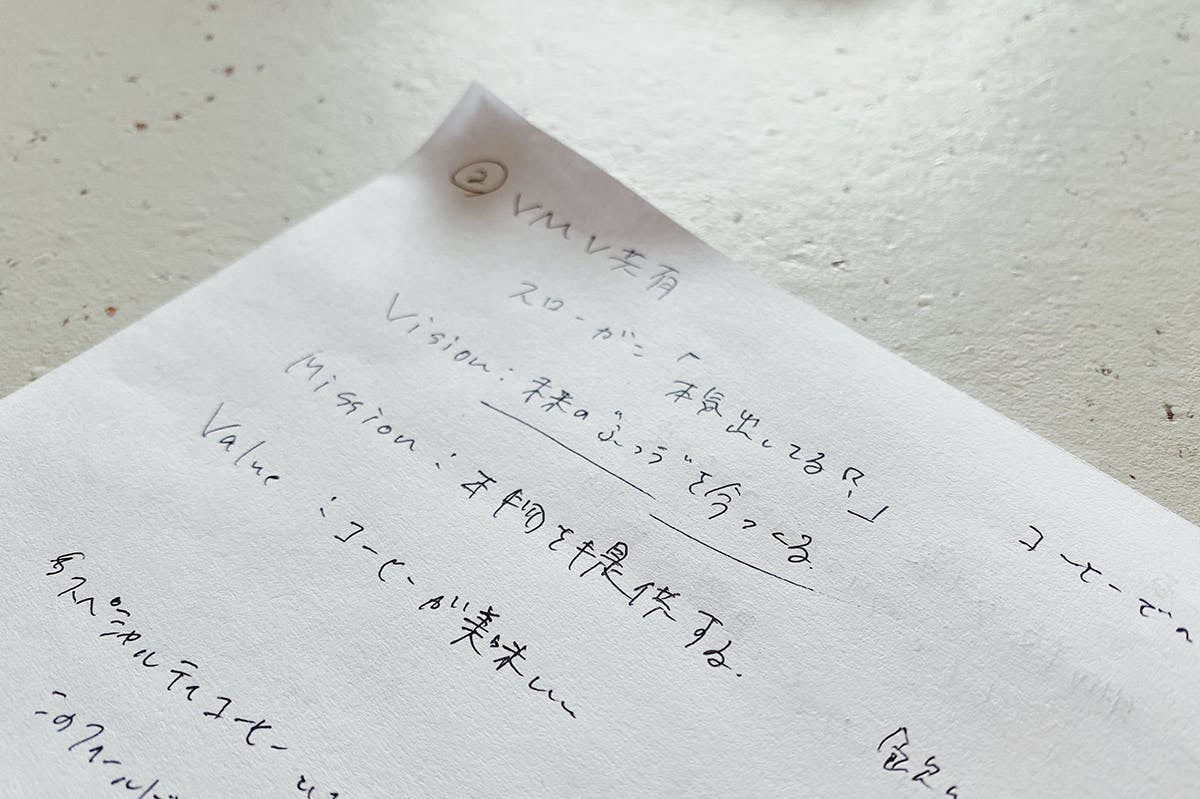 ② VMV共有
スローガン「本気出してる?」
Vision:未来の"ふつう"を今つくる.
Mission:本物を提供する.
Value:コーヒーが美味しい
コーヒーでの
スペシャルティコーヒー
このフィールド
飲